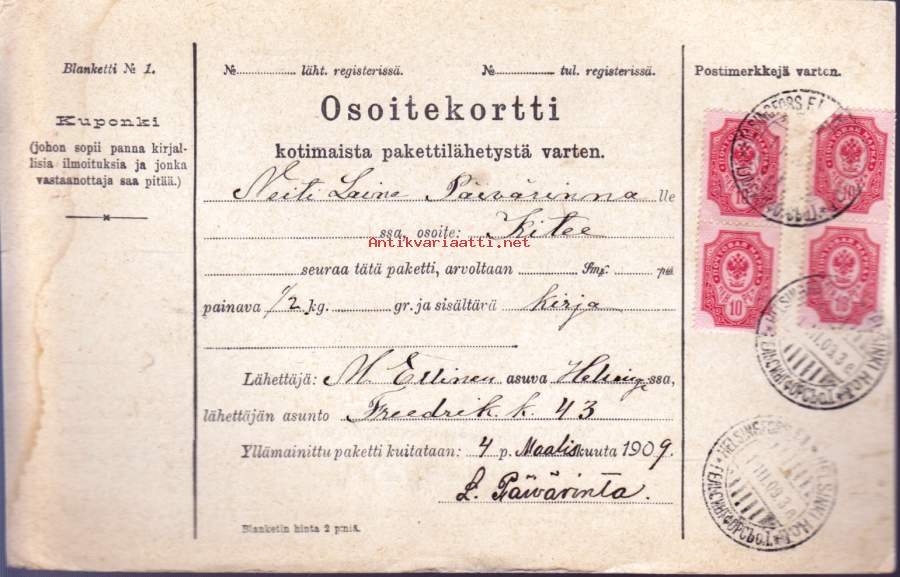 Blanketti № 1.
Kuponki
(johon sopii panna kirjal-
lisia ilmoituksia ja jonka
vastaanottaja saa pitää.)
№ läht. registerissä. № tul. registerissä.
Osoitekortti
kotimaista pakettilähetystä varten.
Neiti Laine Päivärinna lle
ssa, osoite: Kitee
Antikvariaatti.net
seuraa tätä paketti, arvoltaan Smf. pii
painava 1/2 kg. gr. ja sisältävä Kirja
Lähettäjä: M. Ellinen asuva Helsingissa,
lähettäjän asunto Freedrik. k. 43
Yllämainittu paketti kuitataan: 4 p. Maaliskuuta 1909.
L. Päivärinta.
Blanketin hinta 2 p:niä.
Postimerkkejä varten.
ПОЧТОВАЯ МАРКА
10
ПОЧТОВАЯ МАРКА
10
ПОЧТОВАЯ МАРКА
10
ПОЧТОВАЯ МАРКА
10
HELSINGFORS
HELSINKI